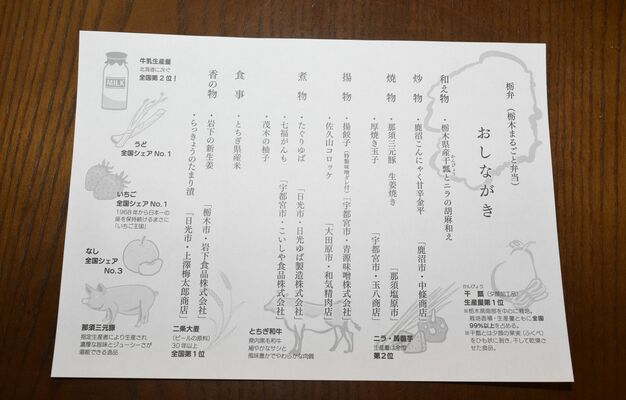 栃弁(栃木まるごと弁当)
おしながき
和え物
・栃木県産干瓢とニラの胡麻和え
かんぴょう
炒物
・鹿沼こんにゃく甘辛金平
「鹿沼市・中條商店」
焼物
・那須三元豚 生姜焼き
「那須塩原市」
・厚焼き玉子
「宇都宮市・玉八商店」
揚物
・揚餃子(特製味噌ダレ付)「宇都宮市・青源味噌株式会社」
・佐久山コロッケ
「大田原市・和気精肉店」
煮物
・たぐりゆば
「日光市・日光ゆば製造株式会社」
・七福がんも
「宇都宮市・こいしや食品株式会社」
・茂木の柚子
食事
・とちぎ県産米
香の物
・岩下の新生姜
「栃木市・岩下食品株式会社」
・らっきょうのたまり漬
「日光市・上澤梅太郎商店」
牛乳生産量
北海道に次ぐ
全国第2位!
MILK
うど
全国シェア No.1
いちご
全国シェア No.1
1968年から日本一の
座を保持続けるまさに
「いちご王国」
なし
全国シェア
No.3
那須三元豚
指定生産者により生産され
濃厚な旨味とジューシーさが
堪能できる逸品
二条大麦
(ビールの原料)
30年以上
全国第1位
とちぎ和牛
県内黒毛和牛
細やかなサシと
風味豊かでやわらかな肉質
ニラ・蒟蒻芋
生産量は全位
第2位
かんぴょう
干瓢(夕顔加工品)
生産量第1位
※栃木県南部を中心に栽培。
栽培面積・生産量ともに全国
99%以上を占める。
※干瓢とは夕顔の果実(ふくべ)
をひも状に剥き、干して乾燥さ
せた食品。